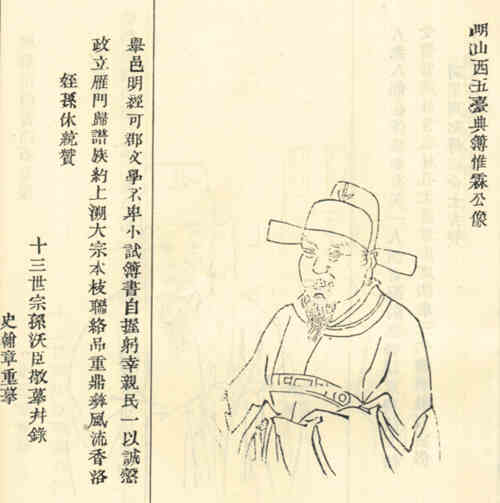 明山西五臺典簿惟霖公像
舉邑明經可郡文學不卑小試簿書自握躬幸親民一以誠愨
政立雁門歸譜族約上溯大宗本枝聯絡品重鼎彝風流香洛
姪孫休統贊
十三世宗孫沃臣敬摹并錄
史翰章重摹